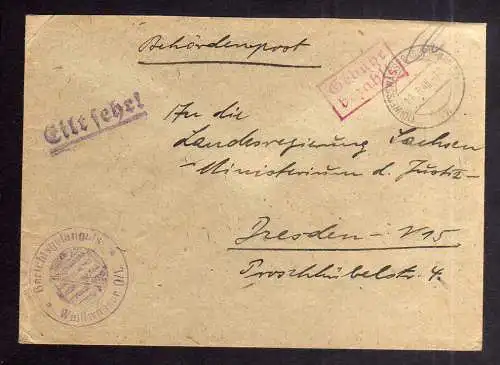 Behördenpost
Gebühr
bezahlt
Eilt sehr!
An die
Landesregierung Sachsen
Ministerium d. Justiz
Dresden - N15
Proschhübelstr. 4.
Gerichtsgefängnis
Weißwasser O/L